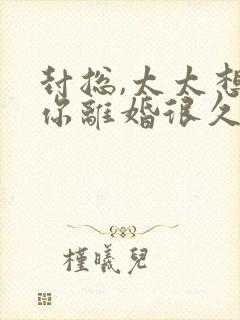 封总,太太想
你離婚很久
槿曦兒